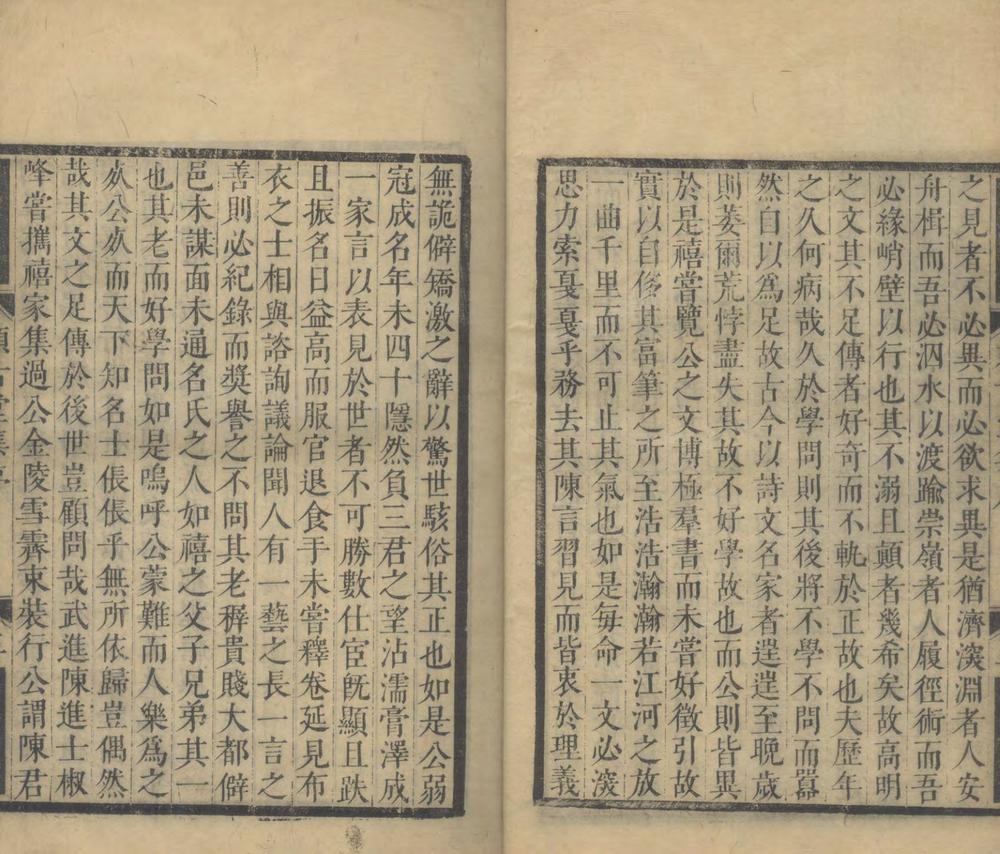 之見者不必異而必欲求異是猶濟深淵者人安
舟楫而吾必泅水以渡踰崇嶺者人履徑術而吾
必緣峭壁以行也其不溺且顛者幾希矣故高明
之文其不足傳者好奇而不軌於正故也夫歷年
之久何病哉久於學問則其後將不學不問而囂
然自以爲足故古今以詩文名家者遑遑至晚歲
則萎爾荒悖盡失其故不好學故也而公則皆異
於是禧嘗覽公之文博極羣書而未嘗好徵引故
實以自侈其富筆之所至浩浩瀚瀚若江河之放
一曲千里而不可止其氣也如是每命一文必深
思力索戞戞乎務去其陳言習見而皆衷於理義
無詭僻矯激之辭以驚世駭俗其正也如是公弱
冠成名年未四十隱然負三君之望沾濡膏澤成
一家言以表見於世者不可勝數仕宦旣顯且跌
且振名日益高而服官退食手未嘗釋卷延見布
衣之士相與諮詢議論聞人有一藝之長一言之
善則必紀錄而奬譽之不問其老穉貴賤大都僻
邑未謀面未通名氏之人如禧之父子兄弟其一
也其老而好學問如是嗚呼公蒙難而人樂爲之
㱙公㱙而天下知名士倀倀乎無所依歸豈偶然
哉其文之足傳於後世豈顧問哉武進陳進士椒
峰嘗攜禧家集過公金陵雪霽束裝行公謂陳君